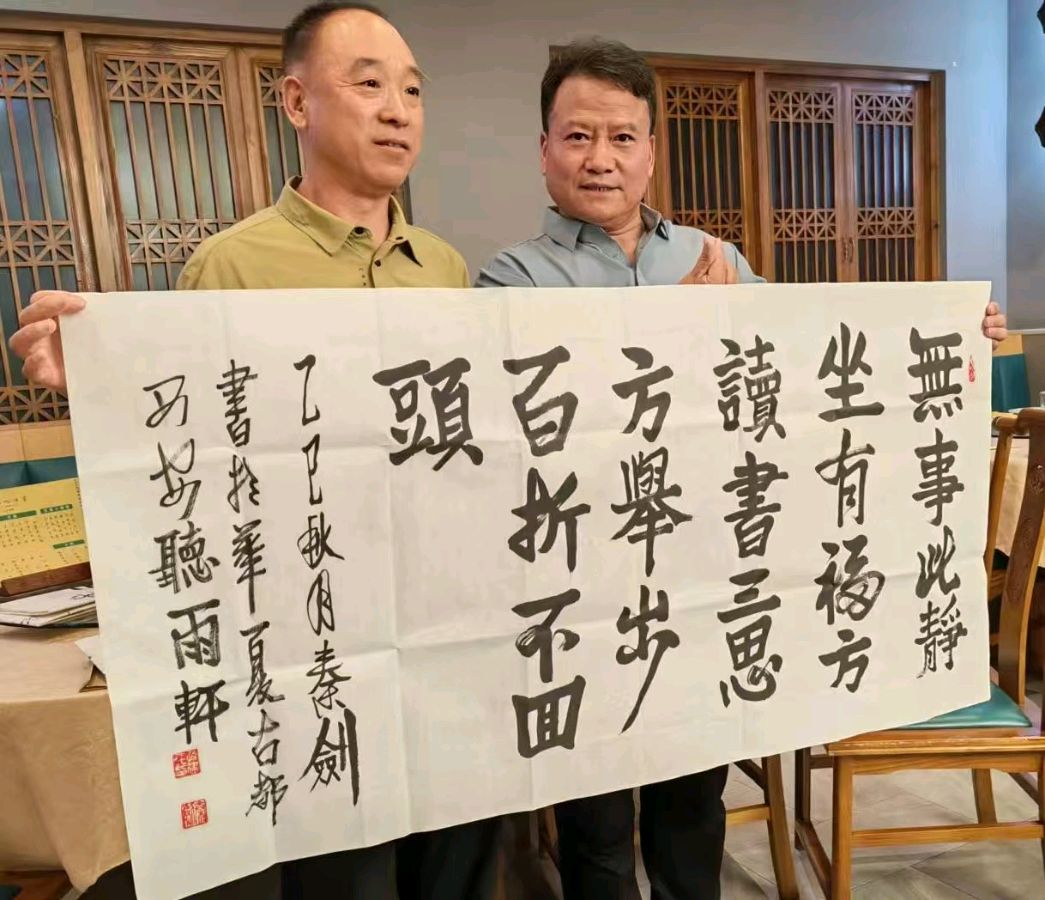 無事此靜
坐有福方
讀書三思
方舉步
百折不回
頭
乙巳秋月秦劍
書於華夏古都
西安聽雨軒